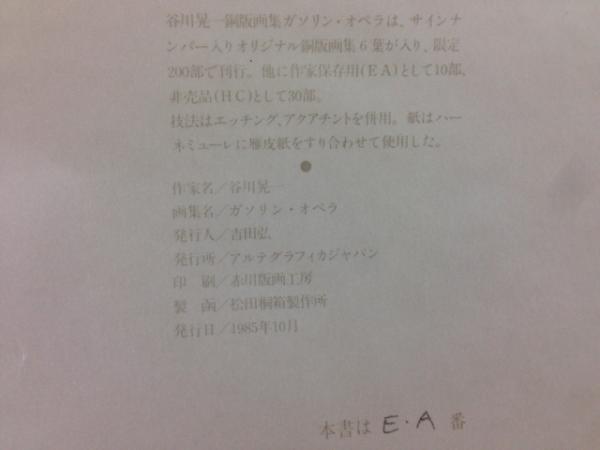 谷川晃一銅版画集ガソリン・オペラは、サインナ
ンバー入りオリジナル銅版画集6葉が入り、限定
200部で刊行。他に作家保存用(EA)として10部、
非売品(HC)として30部。
技法はエッチング、アクアチントを併用。紙はハー
ネミューレに雁皮紙をすり合わせて使用した。
●
作家名／谷川晃一
画集名／ガソリン・オペラ
発行人／吉田弘
発行所／アルテグラフィカジャパン
印　刷／赤川版画工房
製　函／松田桐箱製作所
発行日／1985年10月
本書は E・A 番